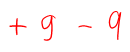 + 9 - 9